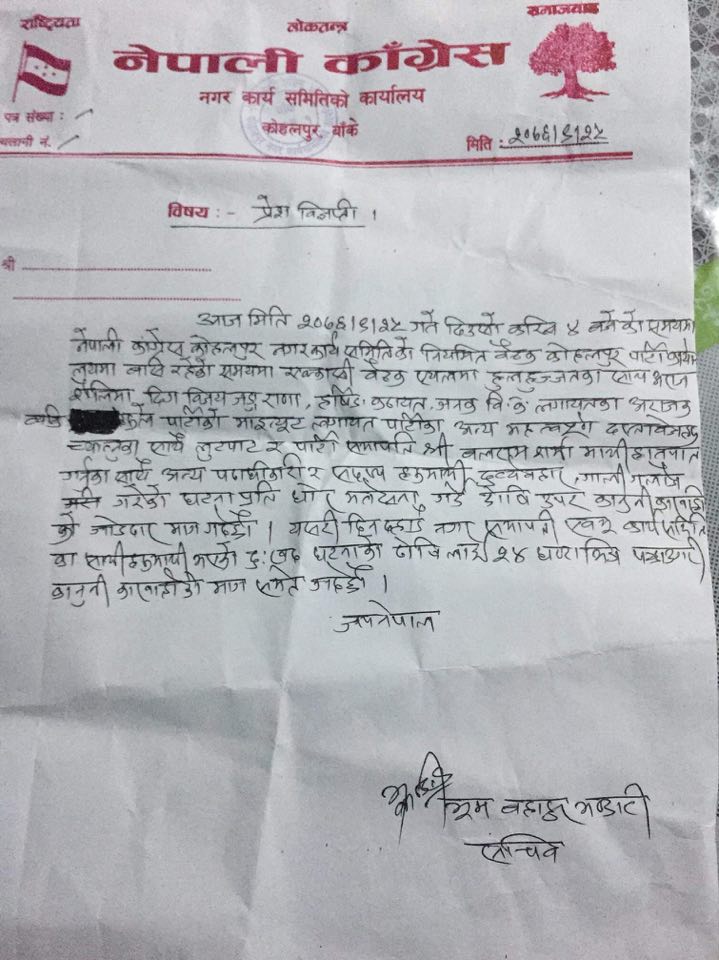 राष्ट्रियता
लोकतन्त्र
समाजवाद
नेपाली काँग्रेस
नगर कार्य समितिको कार्यालय
कोहलपुर, बाँके
पत्र संख्या :
चलानी नं.
मिति : २०७६।९।२५
विषय : - प्रेश विज्ञप्ती ।
श्री
आज मिति २०७६।९।२५ गते दिउसो करिब ४ बजेको समयमा
नेपाली काँग्रेस कोहलपुर नगरकार्य समितिको नियमित बैठक कोहलपुर पार्टी कार्या
लयमा बसि रहेको समयमा एक्कासी बैठक स्थलमा हुलहुज्जतका साथ
दिग विजय जङ्ग राणा, कठायत, जनक वि.क. लगायतका अराजक
पार्टीको माइन्यूट लगायत पार्टीका अन्य महत्वपूर्ण दस्तावेजहरू
च्यात्नुका साथै लुटपाट र पार्टी सभापति श्री बालाराम शर्मा माथी हातपात
गर्नुका साथै अन्य पदाधीकारी र सदस्य हरूमाथी दुर्व्यवहार, गाली गलौज
गरेको घटना प्रति घोर भर्त्सना गर्दै दोषि उपर कानुनी कारवाही
को जोडदार माग गर्दछौं । यसरी दिन दहाडै नगर सभापती एवम् कार्य समिति
का साथी हरूमाथी भएको दुःखद घटनाका दोषि लाई २४ घण्टा भित्र पक्राउ गरी
कानुनी कारवाहीको माग समेत गर्दछौं ।
जयनेपाल
भिम बहादुर भण्डारी
सचिव